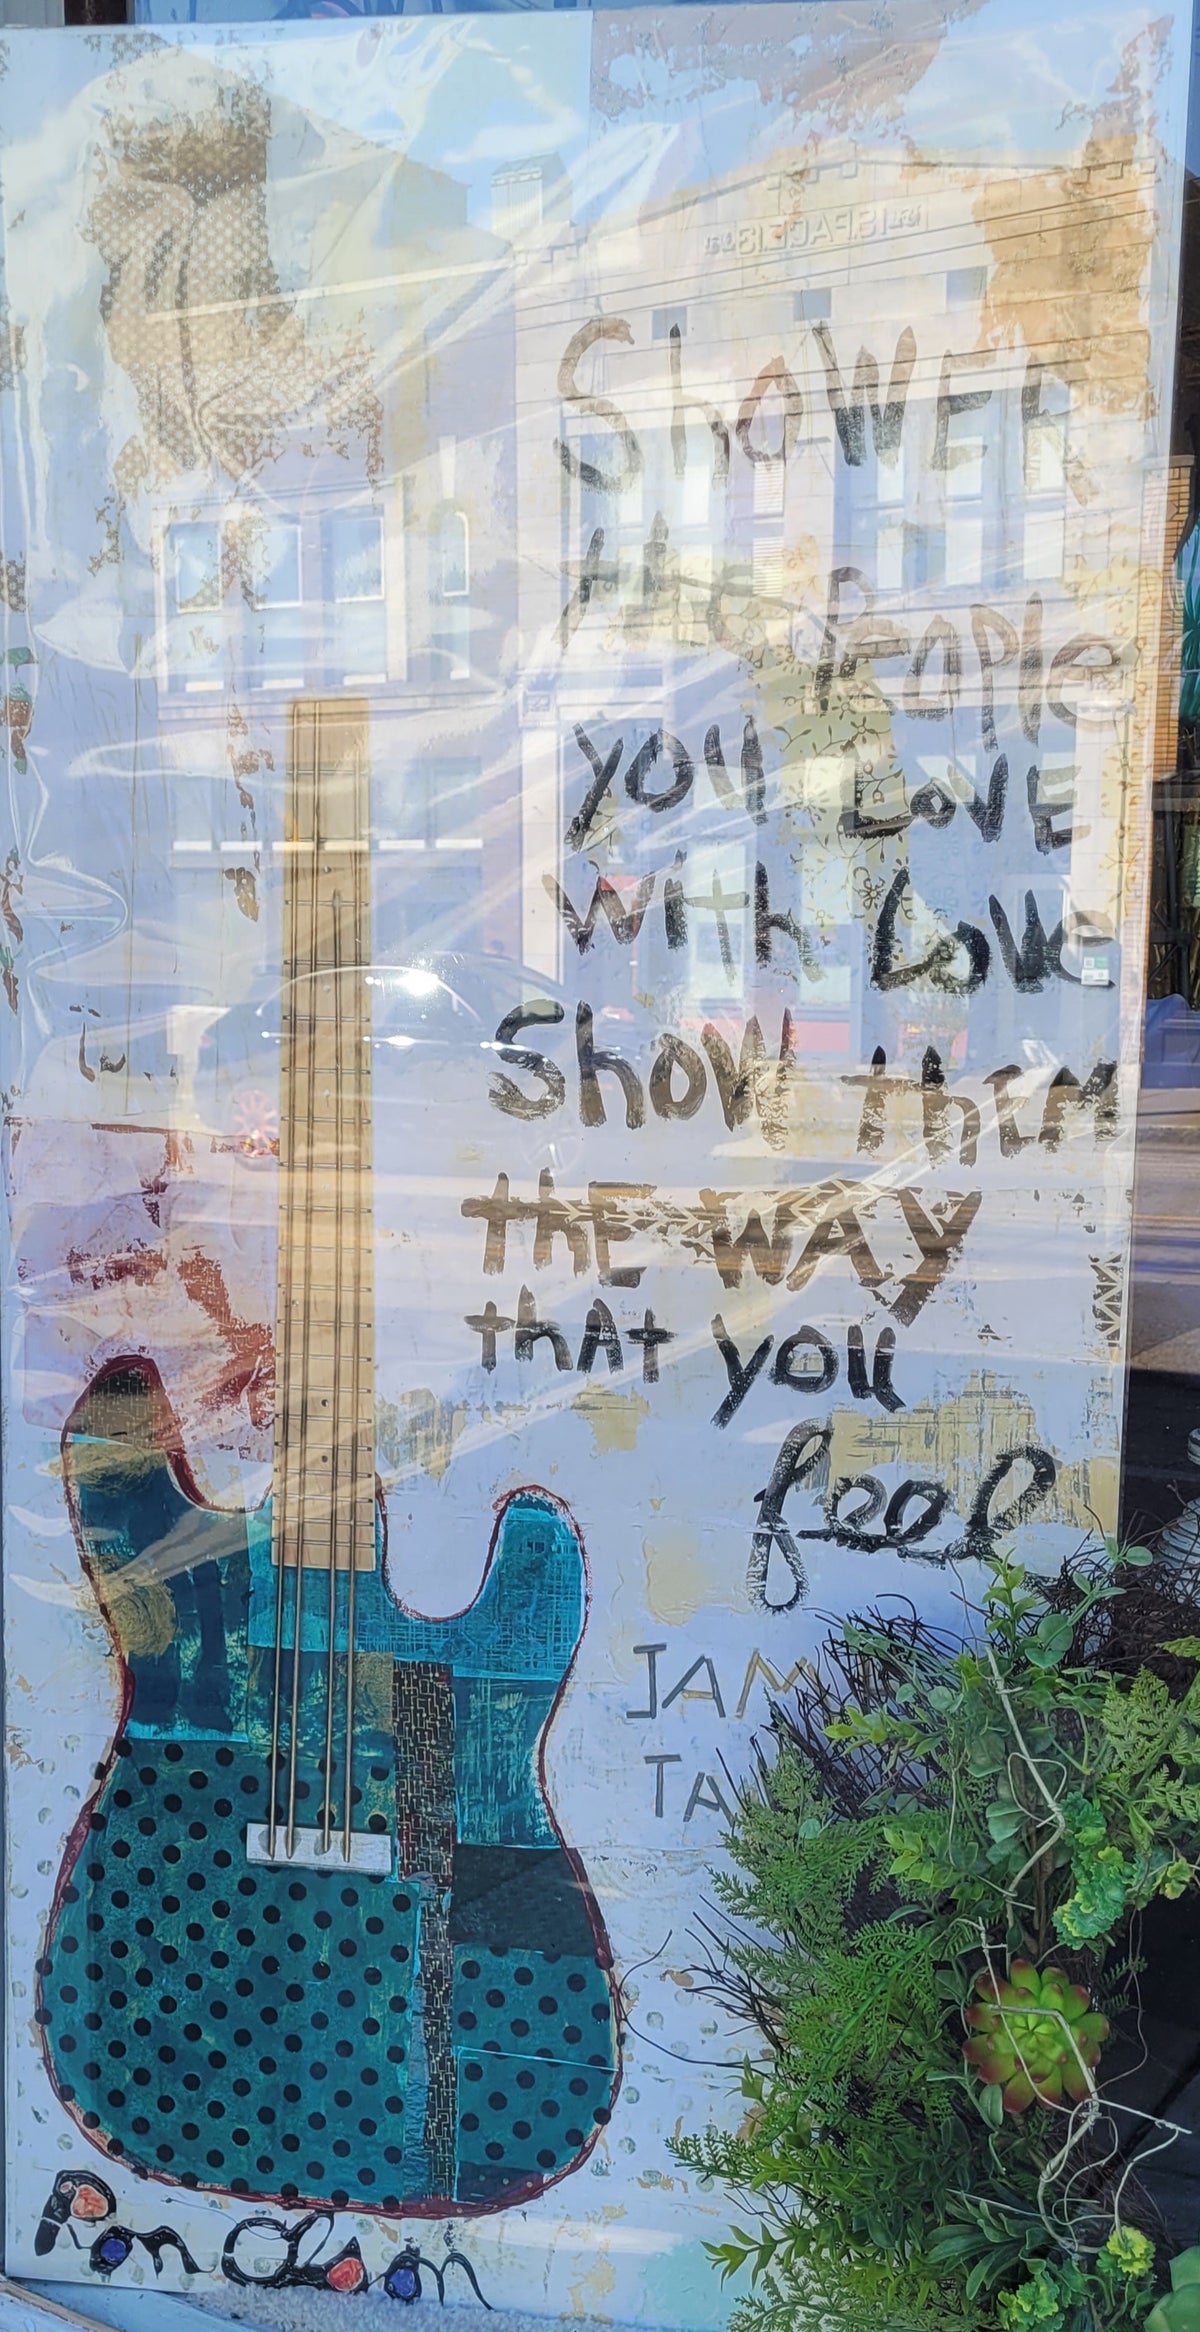 ShoWER
thE PEoPle
you LovE
With Love
Show thEM
thE WAy
thAt you
feel
JAM
TA
Ron Olson